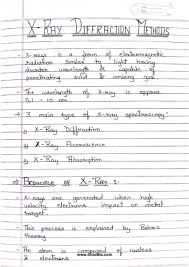 X-RAY DIFFRACTION METHODS
→ X-rays is a form of electromagnetic
radiation similar to light having
shorter wavelength & capable of
penetrating solid & ionizing gas.
→ The wavelength of X-ray is approx
0.1 - 10 nm
→ X main type of X-ray spectroscopy:
i) X-Ray Diffraction
ii) X-Ray Fluorescence
iii) X-Ray Absorption
⇒ PRINCIPLE OF X-RAY :
→ X-rays are generated when high
velocity electrons impact on metal
target.
→ This process is explained by Bohr's
theory.
→ An atom is composed of nucleus
& electrons